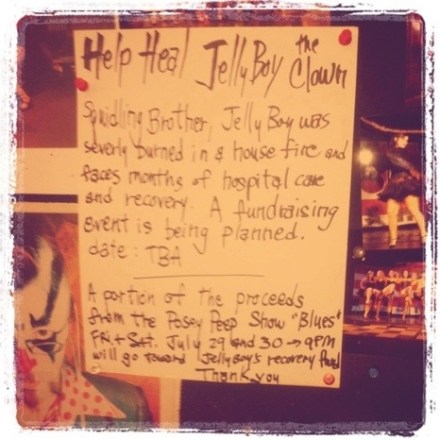 Help Heal JellyBoy the Clown
Squidling Brother, Jelly Boy was
severly burned in a house fire and
faces months of hospital care
and recovery. A fundraising
event is being planned.
date: TBA
A portion of the proceeds
from the Posey Peep Show "Blues"
Fri + Sat. July 29 and 30 → 9PM
will go toward JellyBoy's recovery fund
Thank you